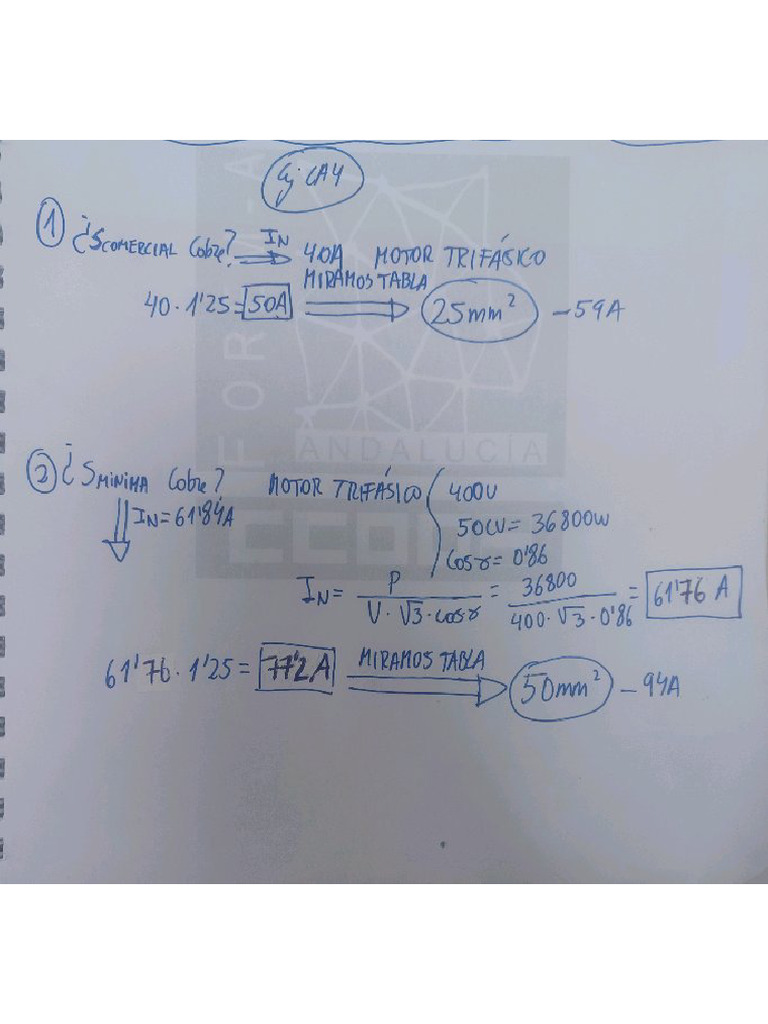 Ej. CA4
① ¿S COMERCIAL Cobre? IN ⇒ 40A MOTOR TRIFÁSICO
40 · 1'25 = 50A MIRAMOS TABLA ⇒ 25mm² - 59A
FORM-A
ANDALUCÍA
CCOO
② ¿S MINIMA Cobre? MOTOR TRIFÁSICO 400V
IN = 61'84A
50CV = 36800W
Cos γ = 0'86
IN = P / V · √3 · cos γ = 36800 / 400 · √3 · 0'86 = 61'76 A
61'76 · 1'25 = 77'2A MIRAMOS TABLA ⇒ 50mm² - 94A